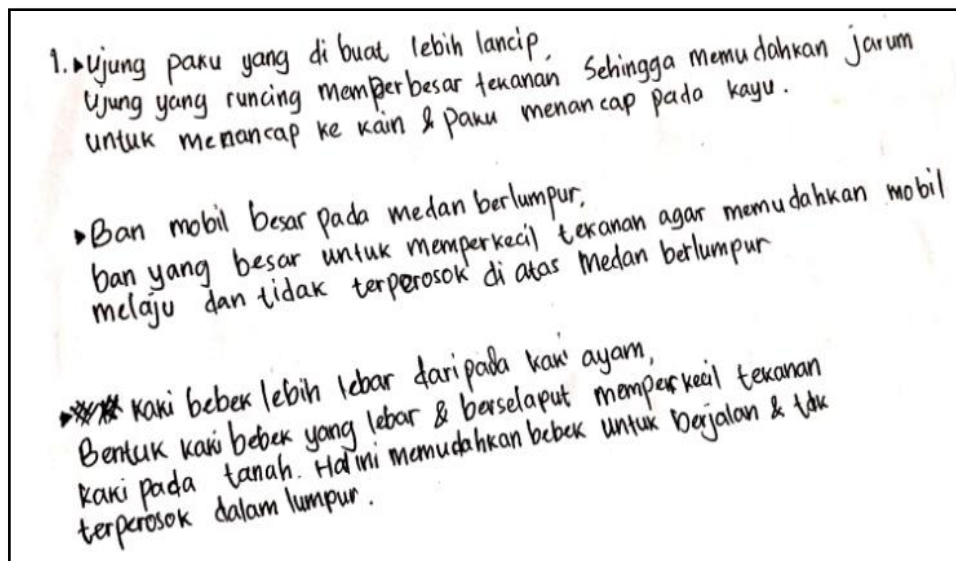 1. ▸Ujung paku yang di buat lebih lancip,
Ujung yang runcing memperbesar tekanan Sehingga memudahkan jarum
untuk menancap ke kain & paku menancap pada kayu.
▸Ban mobil besar pada medan berlumpur,
ban yang besar untuk memperkecil tekanan agar memudahkan mobil
melaju dan tidak terperosok di atas medan berlumpur
▸ Kaki bebek lebih lebar daripada kaki ayam,
Bentuk kaki bebek yang lebar & berselaput memperkecil tekanan
kaki pada tanah. Hal ini memudahkan bebek untuk berjalan & tdk
terperosok dalam lumpur.